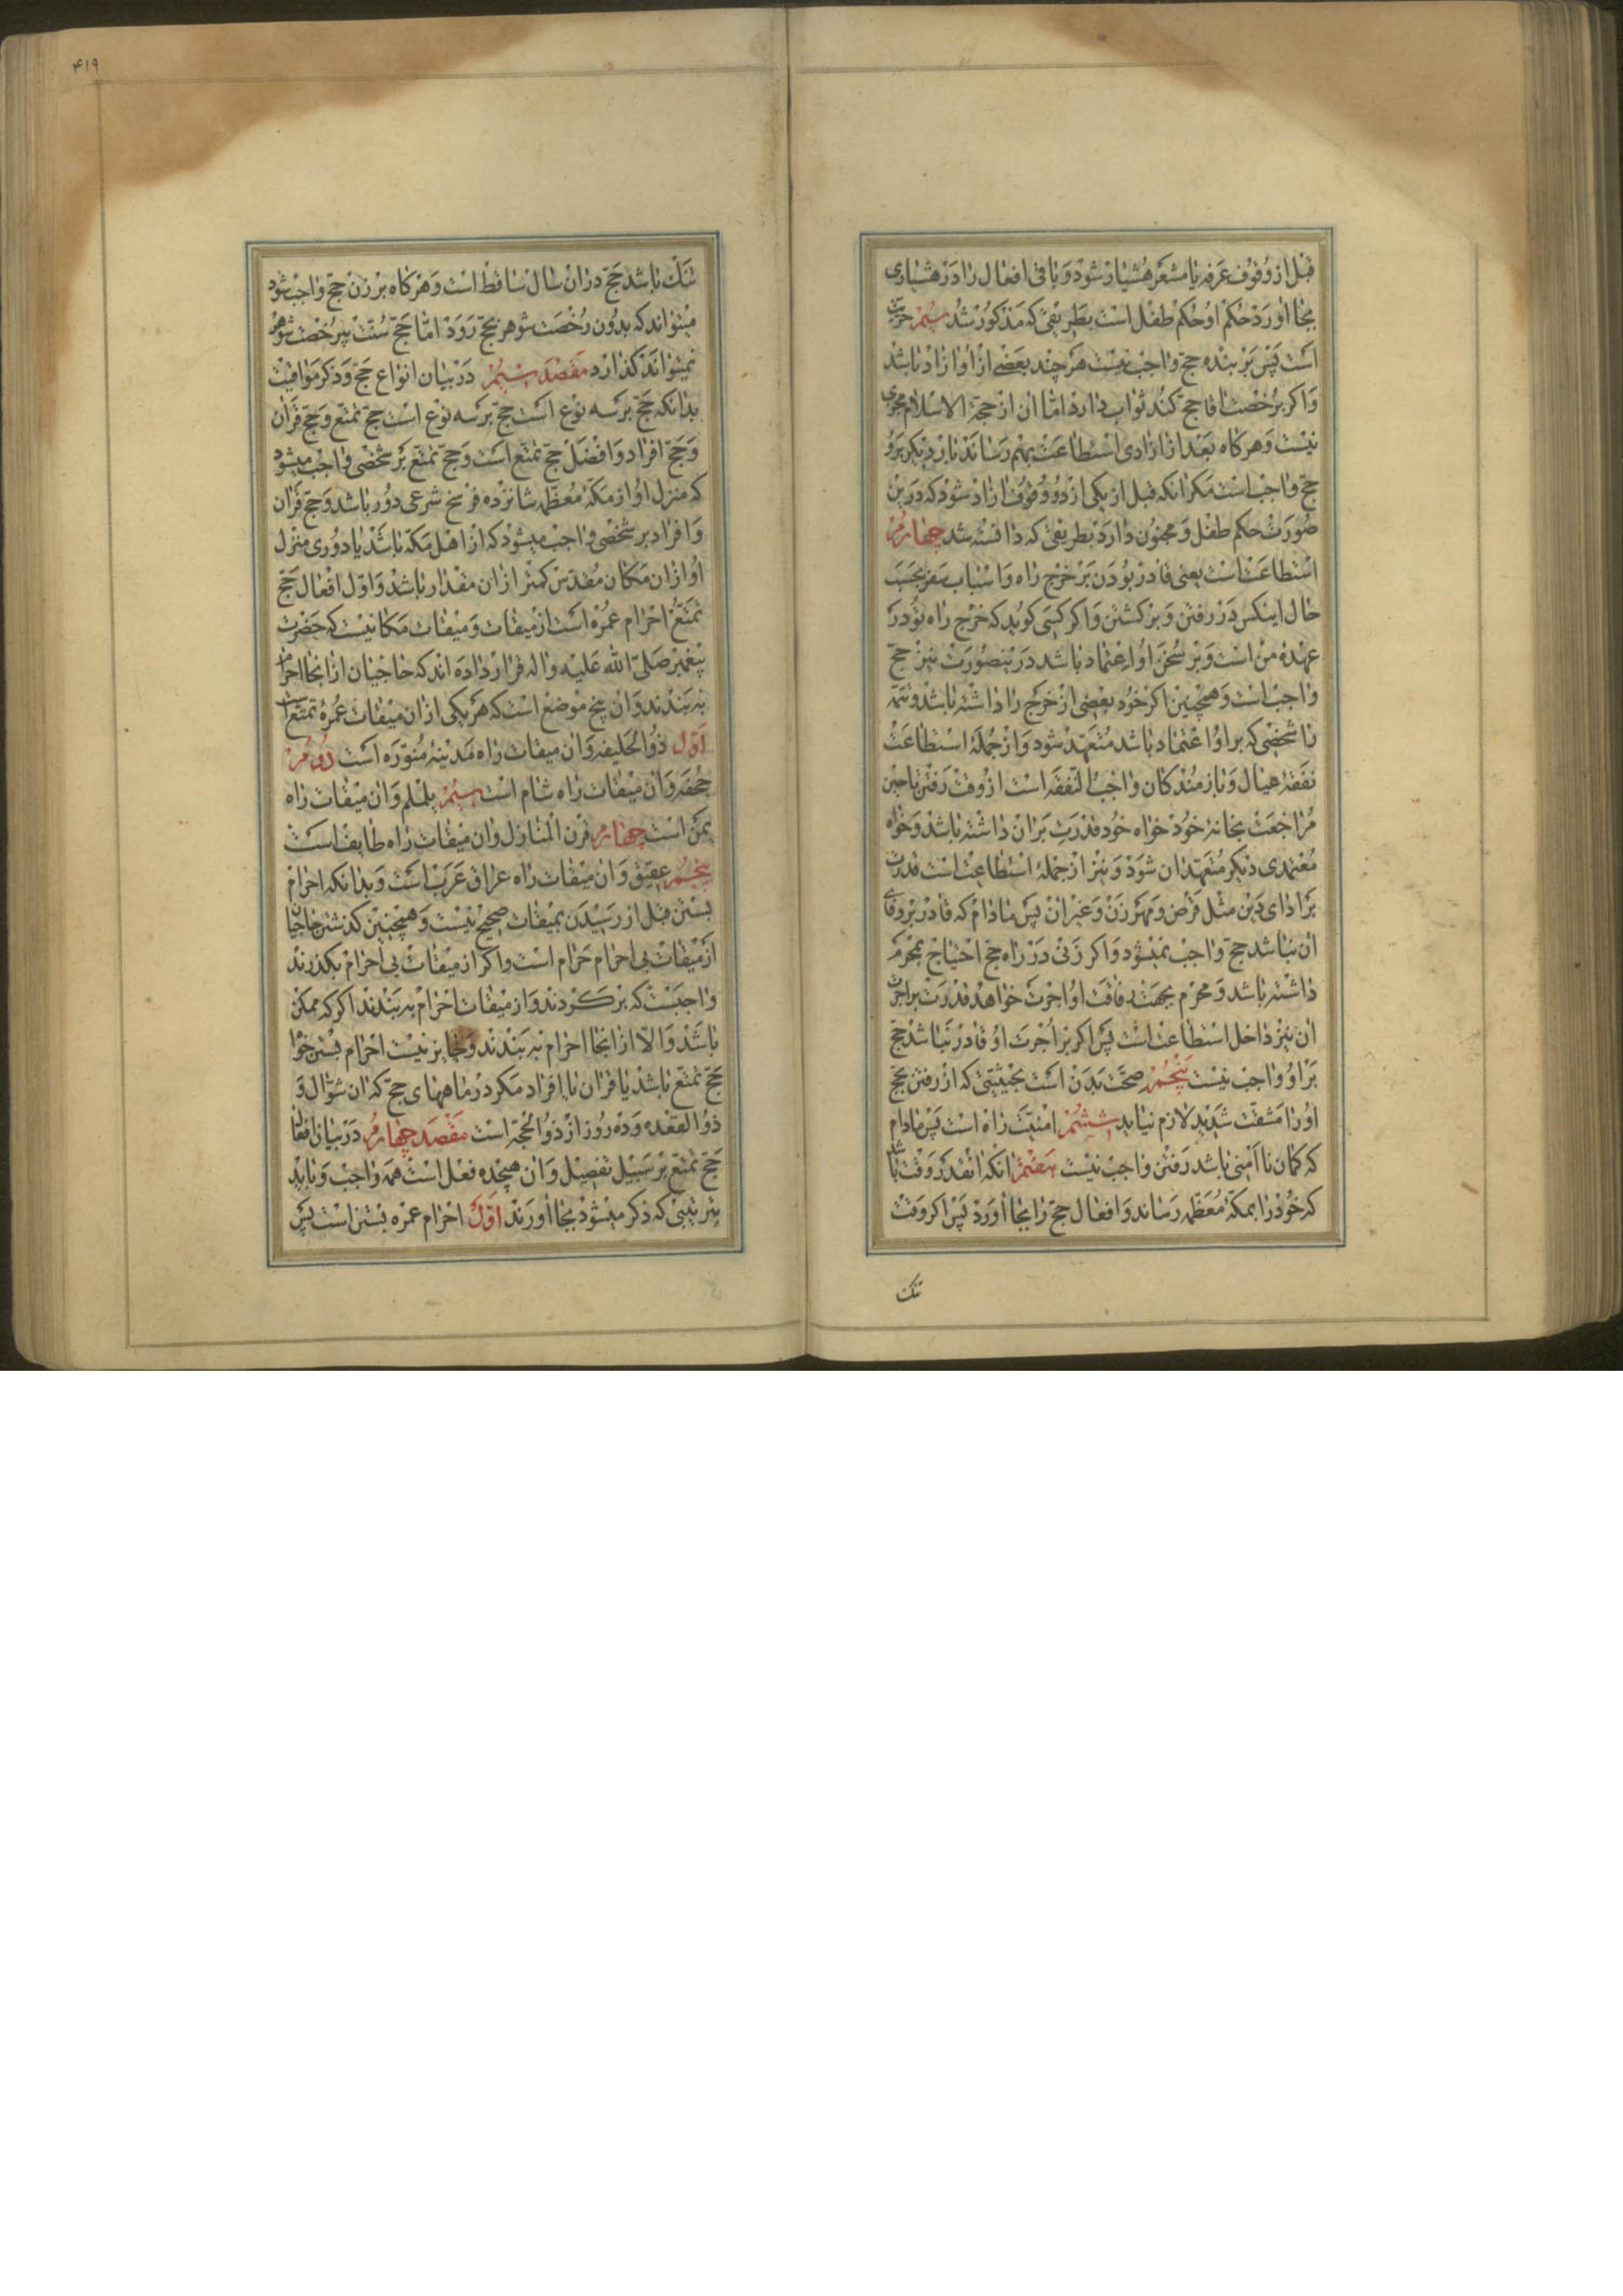 قبل از وقوف عرفه یا مشعر هشیار شود و باقی افعال را در هشیاری
بجا اورد حکم او حکم طفل است بطریقی که مذکور شد سیم حریت
است پس بر بنده حج واجب نیست هر چند بعضی از او ازاد باشد
و اکر برخصت اقا حج کند ثواب دارد اما ان از حجة الاسلام مجزی
نیست و هرکاه بعد از ازادی استطاعت بهم رساند بار دیکر برو
حج واجب است مکر انکه قبل از یکی از دو وقوف ازاد شود که درین
صورت حکم طفل و مجنون دارد بطریقی که دانسته شد چهارم
استطاعت است یعنی قادر بودن بر خرج راه و اسباب سفر بحسب
حال اینکس در رفتن و برکشتن و اکر کسی کوید که خرج راه تو در
عهده من است و بر سخن او اعتماد باشد درینصورت نیز حج
واجب است و همچنین اکر خود بعضی از خرج را داشته باشد و تتمه
را شخصی که بر او اعتماد باشد متعهد شود و از جملهٔ استطاعت
نفقه عیال و بازمندکان واجب النفقه است از وقت رفتن تا حین
مراجعت بخانهٔ خود خواه خود قدرت بر ان داشته باشد و خواه
معتمدی دیکر متعهد ان شود و نیز از جملهٔ استطاعت است قدرت
بر ادای دین مثل قرض و مهر زن و غیر ان پس مادام که قادر بر وفای
ان نباشد حج واجب نمیشود و اکر زنی در راه حج احتیاج بمحرم
داشته باشد و محرم بجهت رفاقت او اجرت خواهد قدرت بر اجرت
ان نیز داخل استطاعت است پس اکر بر اجرت او قادر نباشد حج
بر او واجب نیست پنجم صحت بدن است بحیثیتی که از رفتن بحج
او را مشقت شدید لازم نیاید ششم امنیت راه است پس مادام
که کمان نا امنی باشد رفتن واجب نیست هفتم انکه انقدر وقت باشد
که خود را بمکهٔ معظمه رساند و افعال حج را بجا اورد پس اکر وقت
تنک
۴۱۹
تنک باشد حج دران سال ساقط است و هرکاه بر زن حج واجب شود
میتواند که بدون رخصت شوهر بحج رود اما حج سنت بیرخصت شوهر
نمیتواند کذارد مقصد سیم در بیان انواع حج و ذکر مواقیت
بدانکه حج بر سه نوع است حج بر سه نوع است حج تمتع و حج قران
و حج افراد و افضل حج تمتع است و حج تمتع بر شخصی واجب میشود
که منزل او از مکهٔ معظمه شانزده فرسخ شرعی دور باشد و حج قران
و افراد بر شخصی واجب میشود که از اهل مکه باشد یا دوری منزل
او ازان مکان مقدس کمتر ازان مقدار باشد و اول افعال حج
تمتع احرام عمره است از میقات و میقات مکانیست که حضرت
پیغمبر صلی الله علیه واله قرار داده اند که حاجیان ازانجا احرام
به بندند و ان پنج موضع است که هر یکی ازان میقات عمرهٔ تمتع است
اول ذو الحلیفه و ان میقات راه مدینهٔ منوره است دویم
جحفه و ان میقات راه شام است سیم یلملم و ان میقات راه
یمن است چهارم قرن المنازل و ان میقات راه طایف است
پنجم عقیق و ان میقات راه عراق عرب است و بدانکه احرام
بستن قبل از رسیدن بمیقات صحیح نیست و همچنین کذشتن حاجیان
از میقات بی احرام حرام است و اکر از میقات بی احرام بکذرند
واجبست که برکردند و از میقات احرام به بندند اکر که ممکن
باشد و الا ازانجا احرام به بندند و جایز نیست احرام بستن خواه
حج تمتع باشد یا قران یا افراد مکر در ماههای حج که ان شوال و
ذو القعده و ده روز از ذو الحجه است مقصد چهارم در بیان افعال
حج تمتع بر سبیل تفصیل و ان هیجده فعل است همه واجب و باید
بترتیبی که ذکر میشود بجا اورند اول احرام عمره بستن است پس